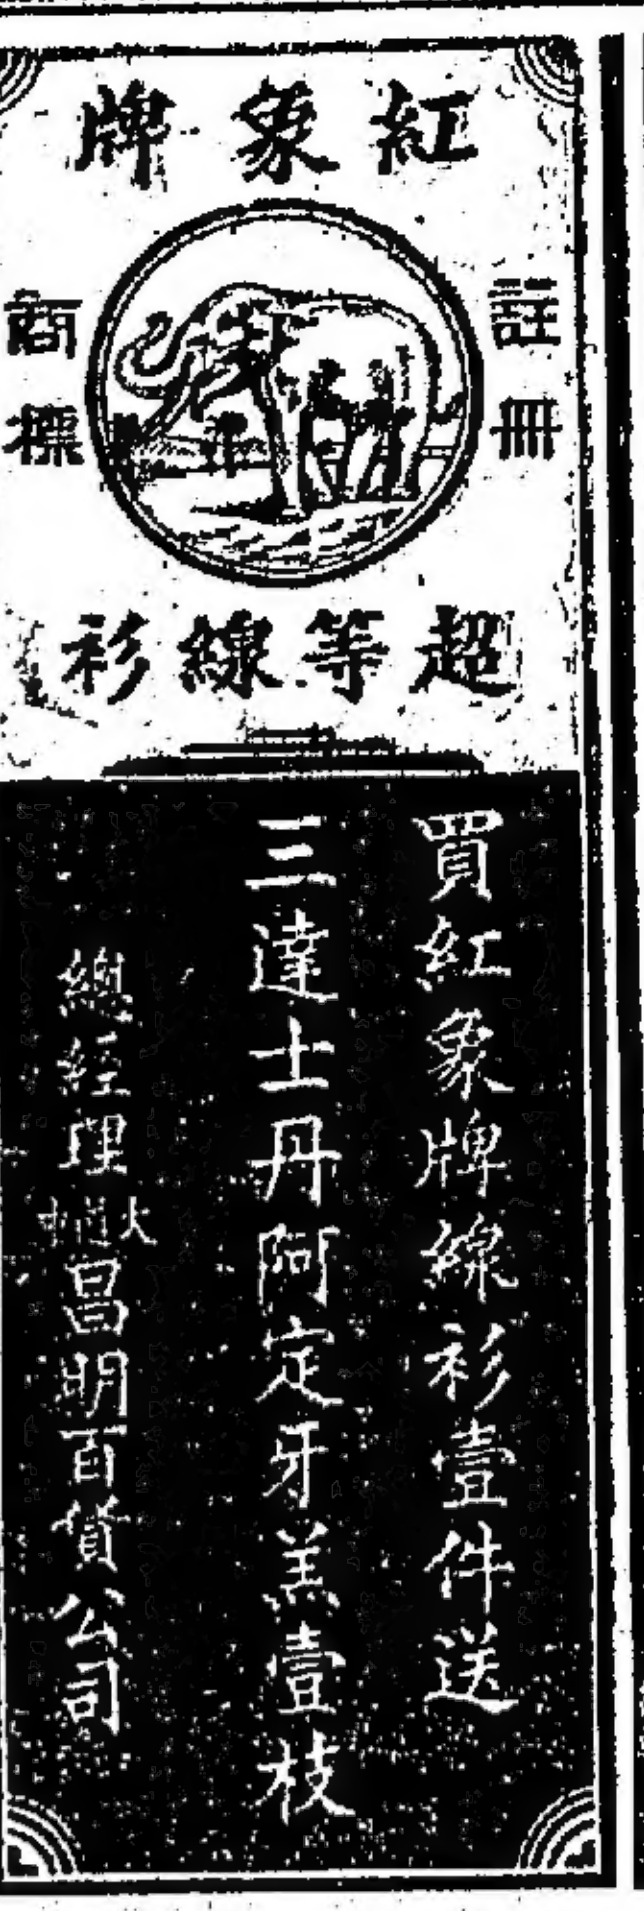 紅象牌
註冊
商標
超等線衫
買紅象牌線衫壹件送
三達士丹阿定牙羔壹枝
總經理大昌明百貨公司